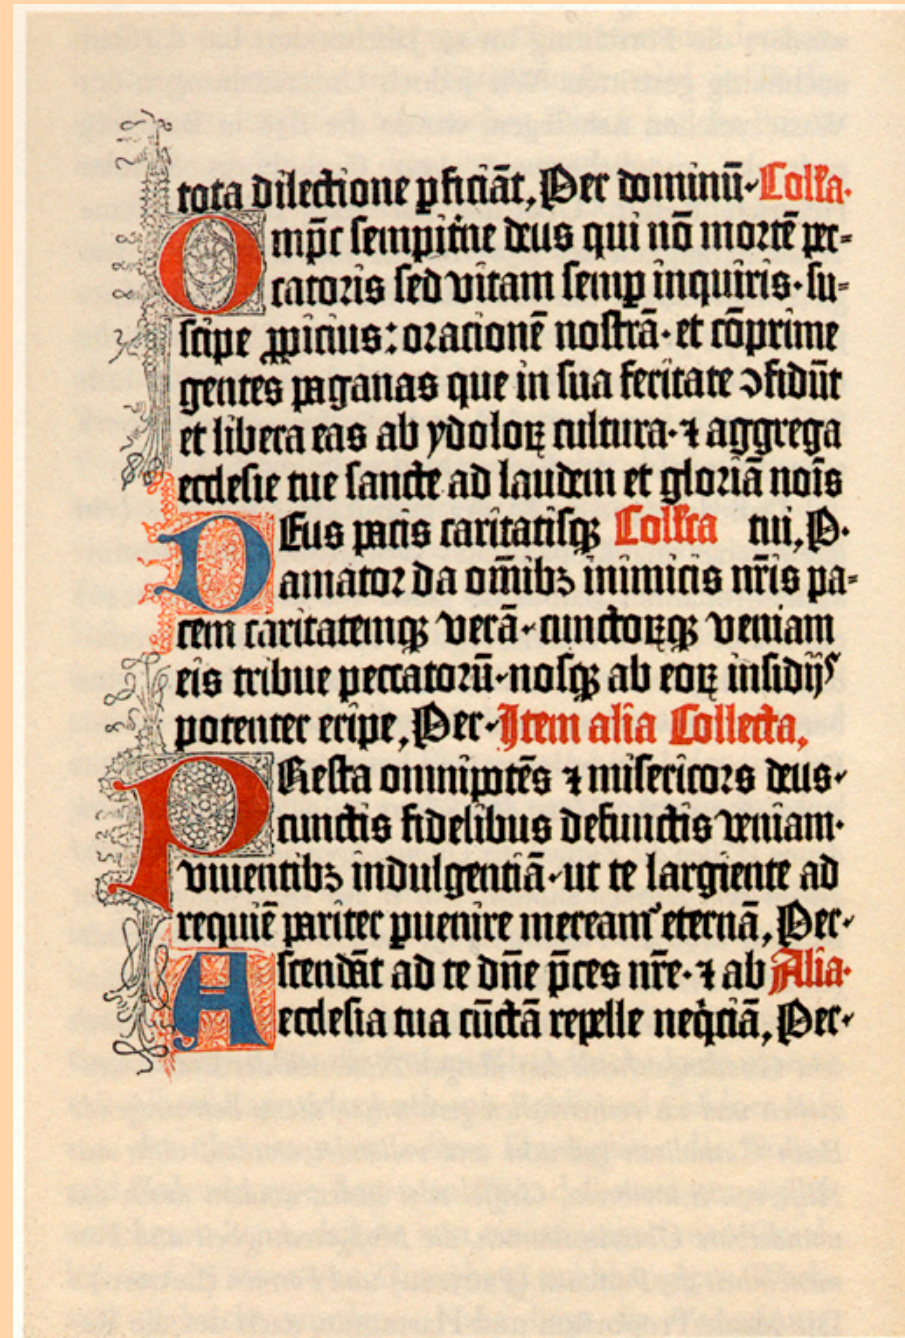 tota dilectione ꝓficiāt, Per dominū. Coll̄a.
Omp̄s sempit̄ne deus qui nō mortē pec-
catoris sed vitam semꝑ inquiris. su-
scipe ꝓpicius: orationē nostrā. et cōprime
gentes paganas que in sua feritate ↄfidūt
et libera eas ab ydoloꝝ cultura. ⁊ aggrega
ecclesie tue sancte ad laudem et gloriā nois̄
DEus pacis caritatisqꝫ Coll̄cta tui, P.
amator da om̄ibꝫ inimicis nr̄is pa-
cem caritatemqꝫ verā. cunctoꝝqꝫ veniam
eis tribue peccatorū. nosqꝫ ab eoꝝ insidijs
potenter eripe, Per. Item alia Collecta,
PResta omnipotēs ⁊ misericors deus.
cunctis fidelibus defunctis veniam.
viuentibꝫ indulgentiā. ut te largiente ad
requiē pariter ꝑuenire mereamʼ eternā, Per.
Ascendāt ad te dn̄e p̄ces nr̄e. ⁊ ab Alia.
ecclesia tua cūctā repelle neq̇tiā, Per.